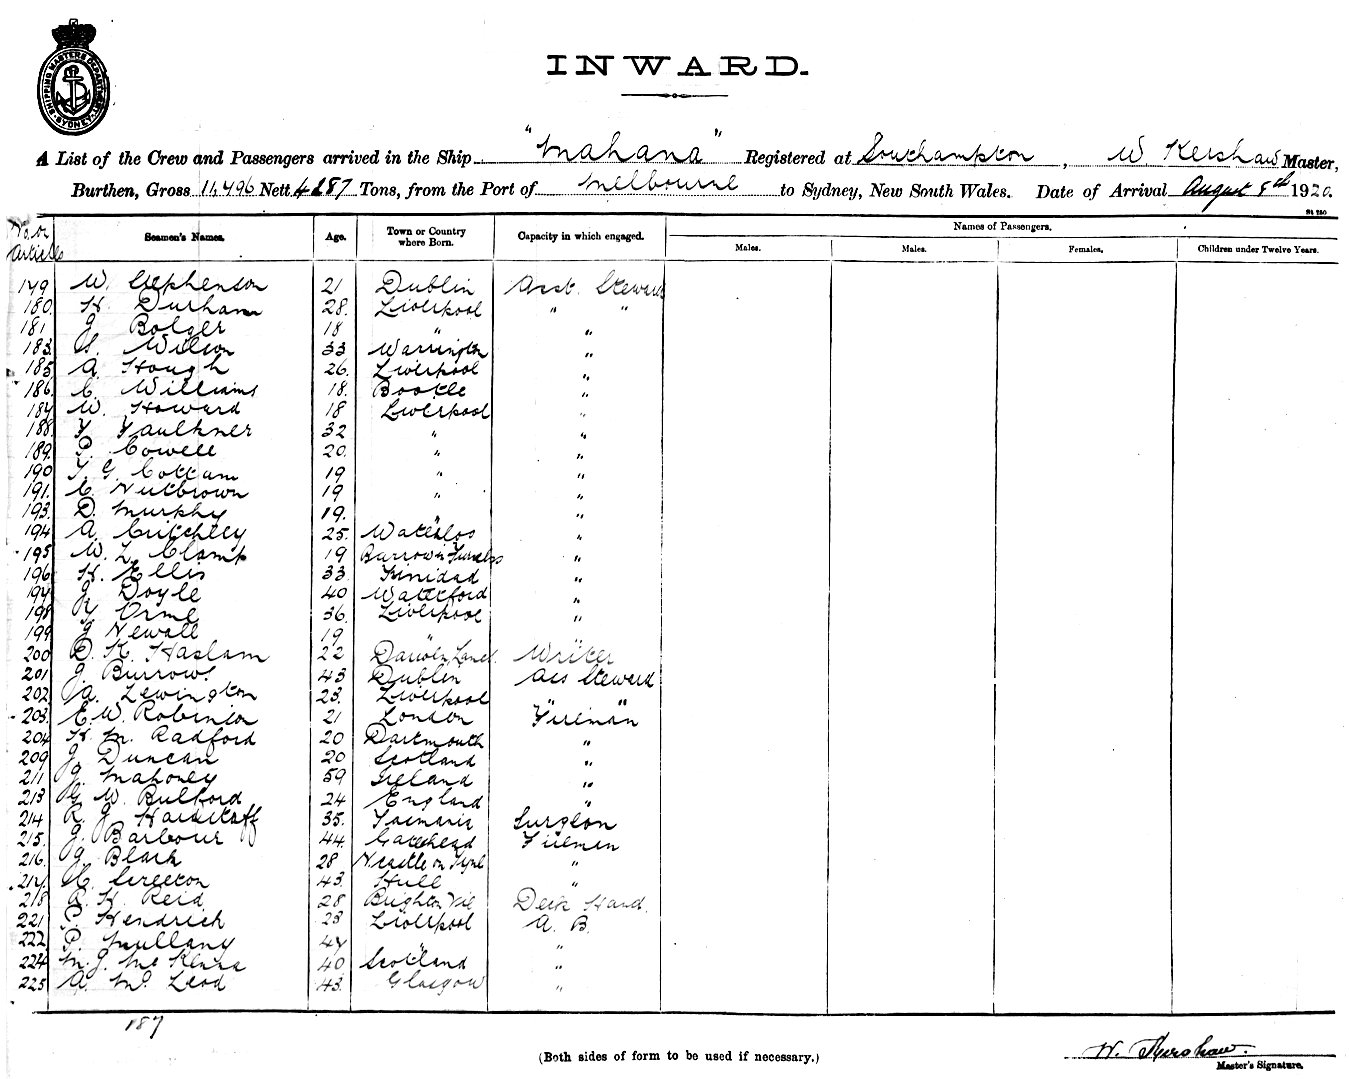 SHIPPING MASTERS DEPARTMENT SYDNEY
INWARD.
A List of the Crew and Passengers arrived in the Ship "Mahana" Registered at Southampton, W Kershaw Master,
Burthen, Gross 11,496 Nett Tons, from the Port of Melbourne to Sydney, New South Wales. Date of Arrival August 8th 1920.
No. on Article Seamen's Names. Age. Town or Country where Born. Capacity in which engaged. Names of Passengers.
Males. Males. Females. Children under Twelve Years.
179 W. Stephenson 21 Dublin Asst. Steward
180 H. Durham 28. Liverpool " "
181 J. Bolger 18 " "
183. S. Wilson 33 Warrington "
185 A. Hough 26. Liverpool "
186. C. Williams 18. Bootle "
187 W. Howard 18 Liverpool "
188. F Faulkner 32 " "
189. P. Cowell 20. " "
190 T. G. Cottam 19 " "
191. C. Nutbrown 19 " "
193. D. Murphy 19. " "
194 A. Critchley 25. Waterloo "
195 W. L. Clamp 19 Barrow in Furness "
196 H. Ellis 33 Trinidad "
197 J. Doyle 40 Waterford "
198 Orme 36. Liverpool "
199 J Newall 19 " "
200 D. K. Haslam 22 Darwen Lancs. Writer
201 J. Burrows. 43 Dublin Ass Steward
202 A. Lewington 23. Liverpool " "
203. E. W. Robinson 21 London Fireman
204 H. M. Radford 20 Dartmouth "
209 J. Duncan 20 Scotland "
211 J. Mahoney 59 Ireland "
213 G. W. Bulford 24 England "
214 R. J. Hardstaff 35. Tasmania Surgeon
215. J. Barbour 44. Gateshead Fireman
216. J. Black 28 Ncastle on Tyne "
217. C. Sreeton 43. Hull "
218 R. H. Reid 28 Brighton Vic Deck Hand.
221 P. Hendrich 23 Liverpool A. B.
222. P. Mullany 47 " "
224. M. J. McKenna 40 Scotland "
225 A. Mc Leod 43. Glasgow "
187
(Both sides of form to be used if necessary.)
W. Kershaw.
Master's Signature.